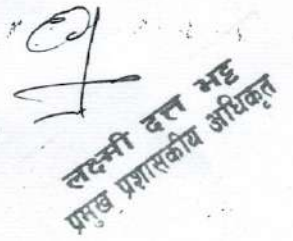 लक्ष्मी दत्त भट्ट
प्रमुख प्रशासकीय अधिकृत